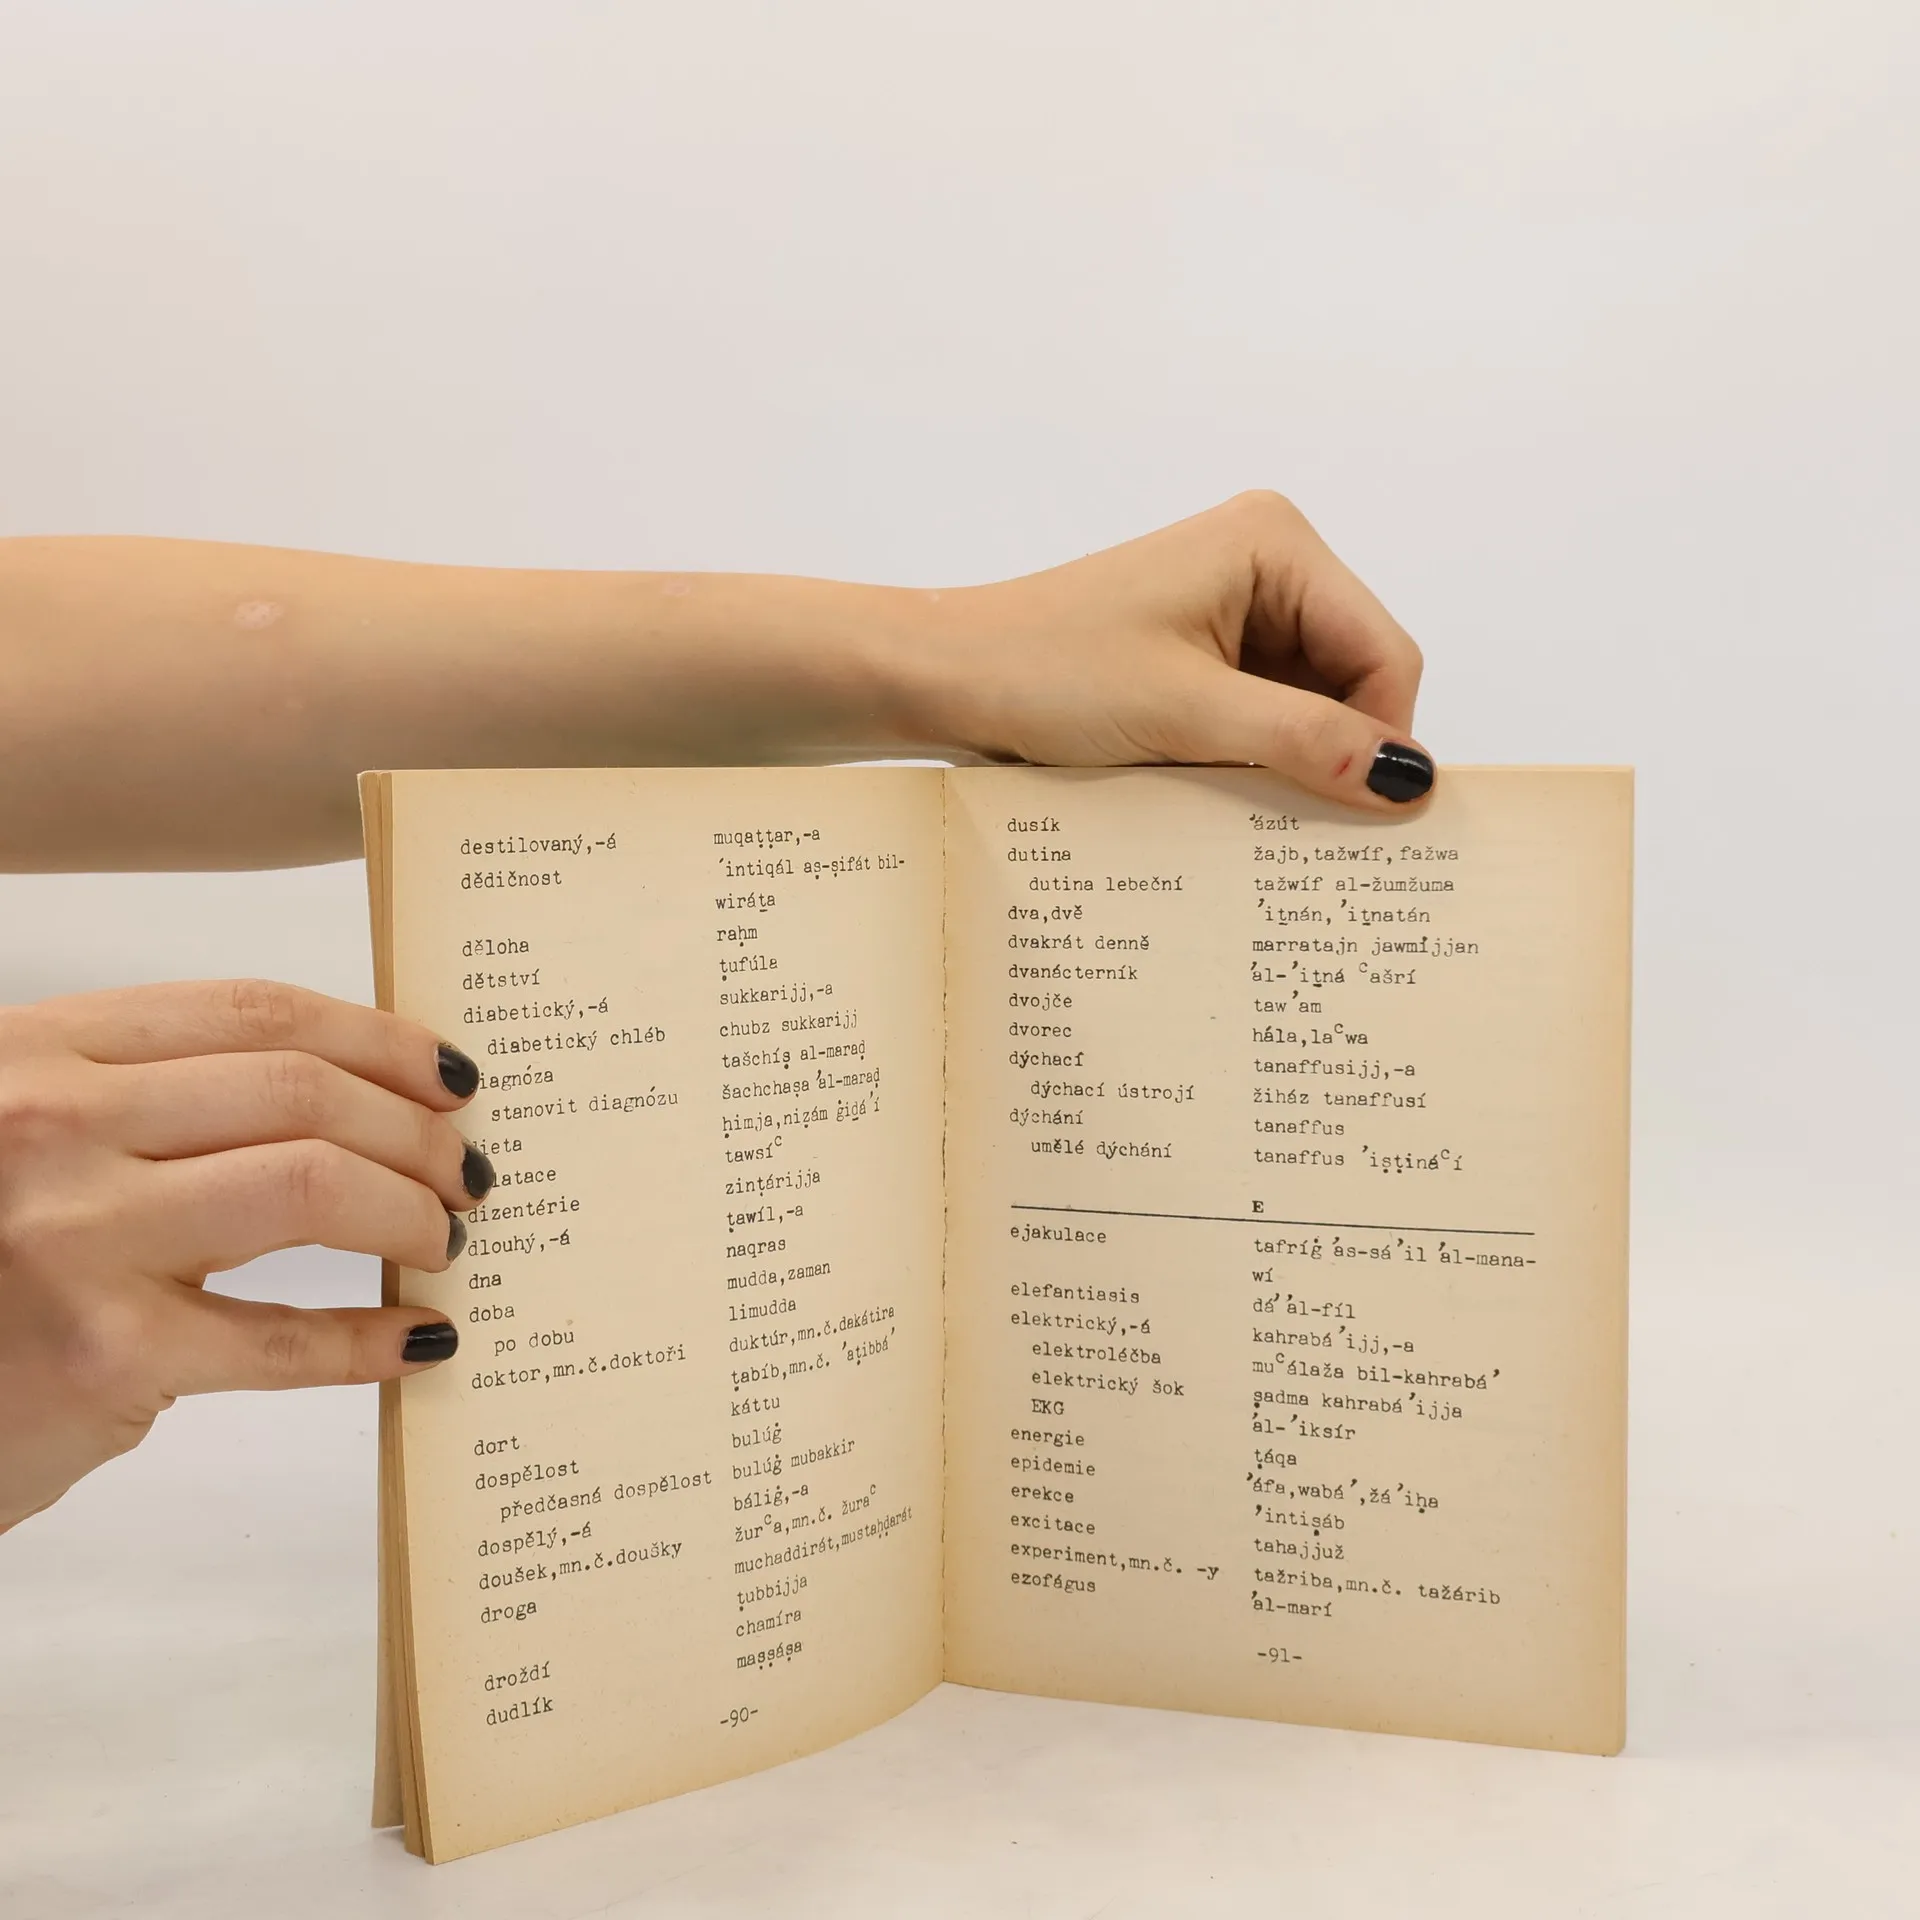 destilovaný,-á muqaṭṭar,-a
dědičnost ʼintiqál aṣ-ṣifát bil-
wiráṯa
děloha raḥm
dětství ṭufúla
diabetický,-á sukkarijj,-a
diabetický chléb chubz sukkarijj
iagnóza tašchíṣ al-maraḍ
stanovit diagnózu šachchaṣa ʼal-maraḍ
ieta ḥimja,niẓám ġiḏáʼí
latace tawsíᶜ
dizentérie zinṭárijja
dlouhý,-á ṭawíl,-a
dna naqras
doba mudda,zaman
po dobu limudda
doktor,mn.č.doktoři duktúr,mn.č.dakátira
ṭabíb,mn.č. ʼaṭibbáʼ
dort káttu
dospělost bulúġ
předčasná dospělost bulúġ mubakkir
dospělý,-á báliġ,-a
doušek,mn.č.doušky žurᶜa,mn.č. žuraᶜ
droga muchaddirát,mustaḥḍarát
ṭubbijja
droždí chamíra
dudlík maṣṣáṣa
-90-
dusík ʼázút
dutina žajb,tažwíf,fažwa
dutina lebeční tažwíf al-žumžuma
dva,dvě ʼiṯnán,ʼiṯnatán
dvakrát denně marratajn jawmíjjan
dvanácterník ʼal-ʼiṯná ᶜašrí
dvojče tawʼam
dvorec hála,laᶜwa
dýchací tanaffusijj,-a
dýchací ústrojí žiház tanaffusí
dýchání tanaffus
umělé dýchání tanaffus ʼiṣṭináᶜí
E
ejakulace tafríġ ʼas-sáʼil ʼal-mana-
wí
elefantiasis dáʼʼal-fíl
elektrický,-á kahrabáʼijj,-a
elektroléčba muᶜálaža bil-kahrabáʼ
elektrický šok ṣadma kahrabáʼijja
EKG ʼal-ʼiksír
energie ṭáqa
epidemie ʼáfa,wabáʼ,žáʼiḥa
erekce ʼintiṣáb
excitace tahajjuž
experiment,mn.č. -y tažriba,mn.č. tažárib
ezofágus ʼal-marí
-91-